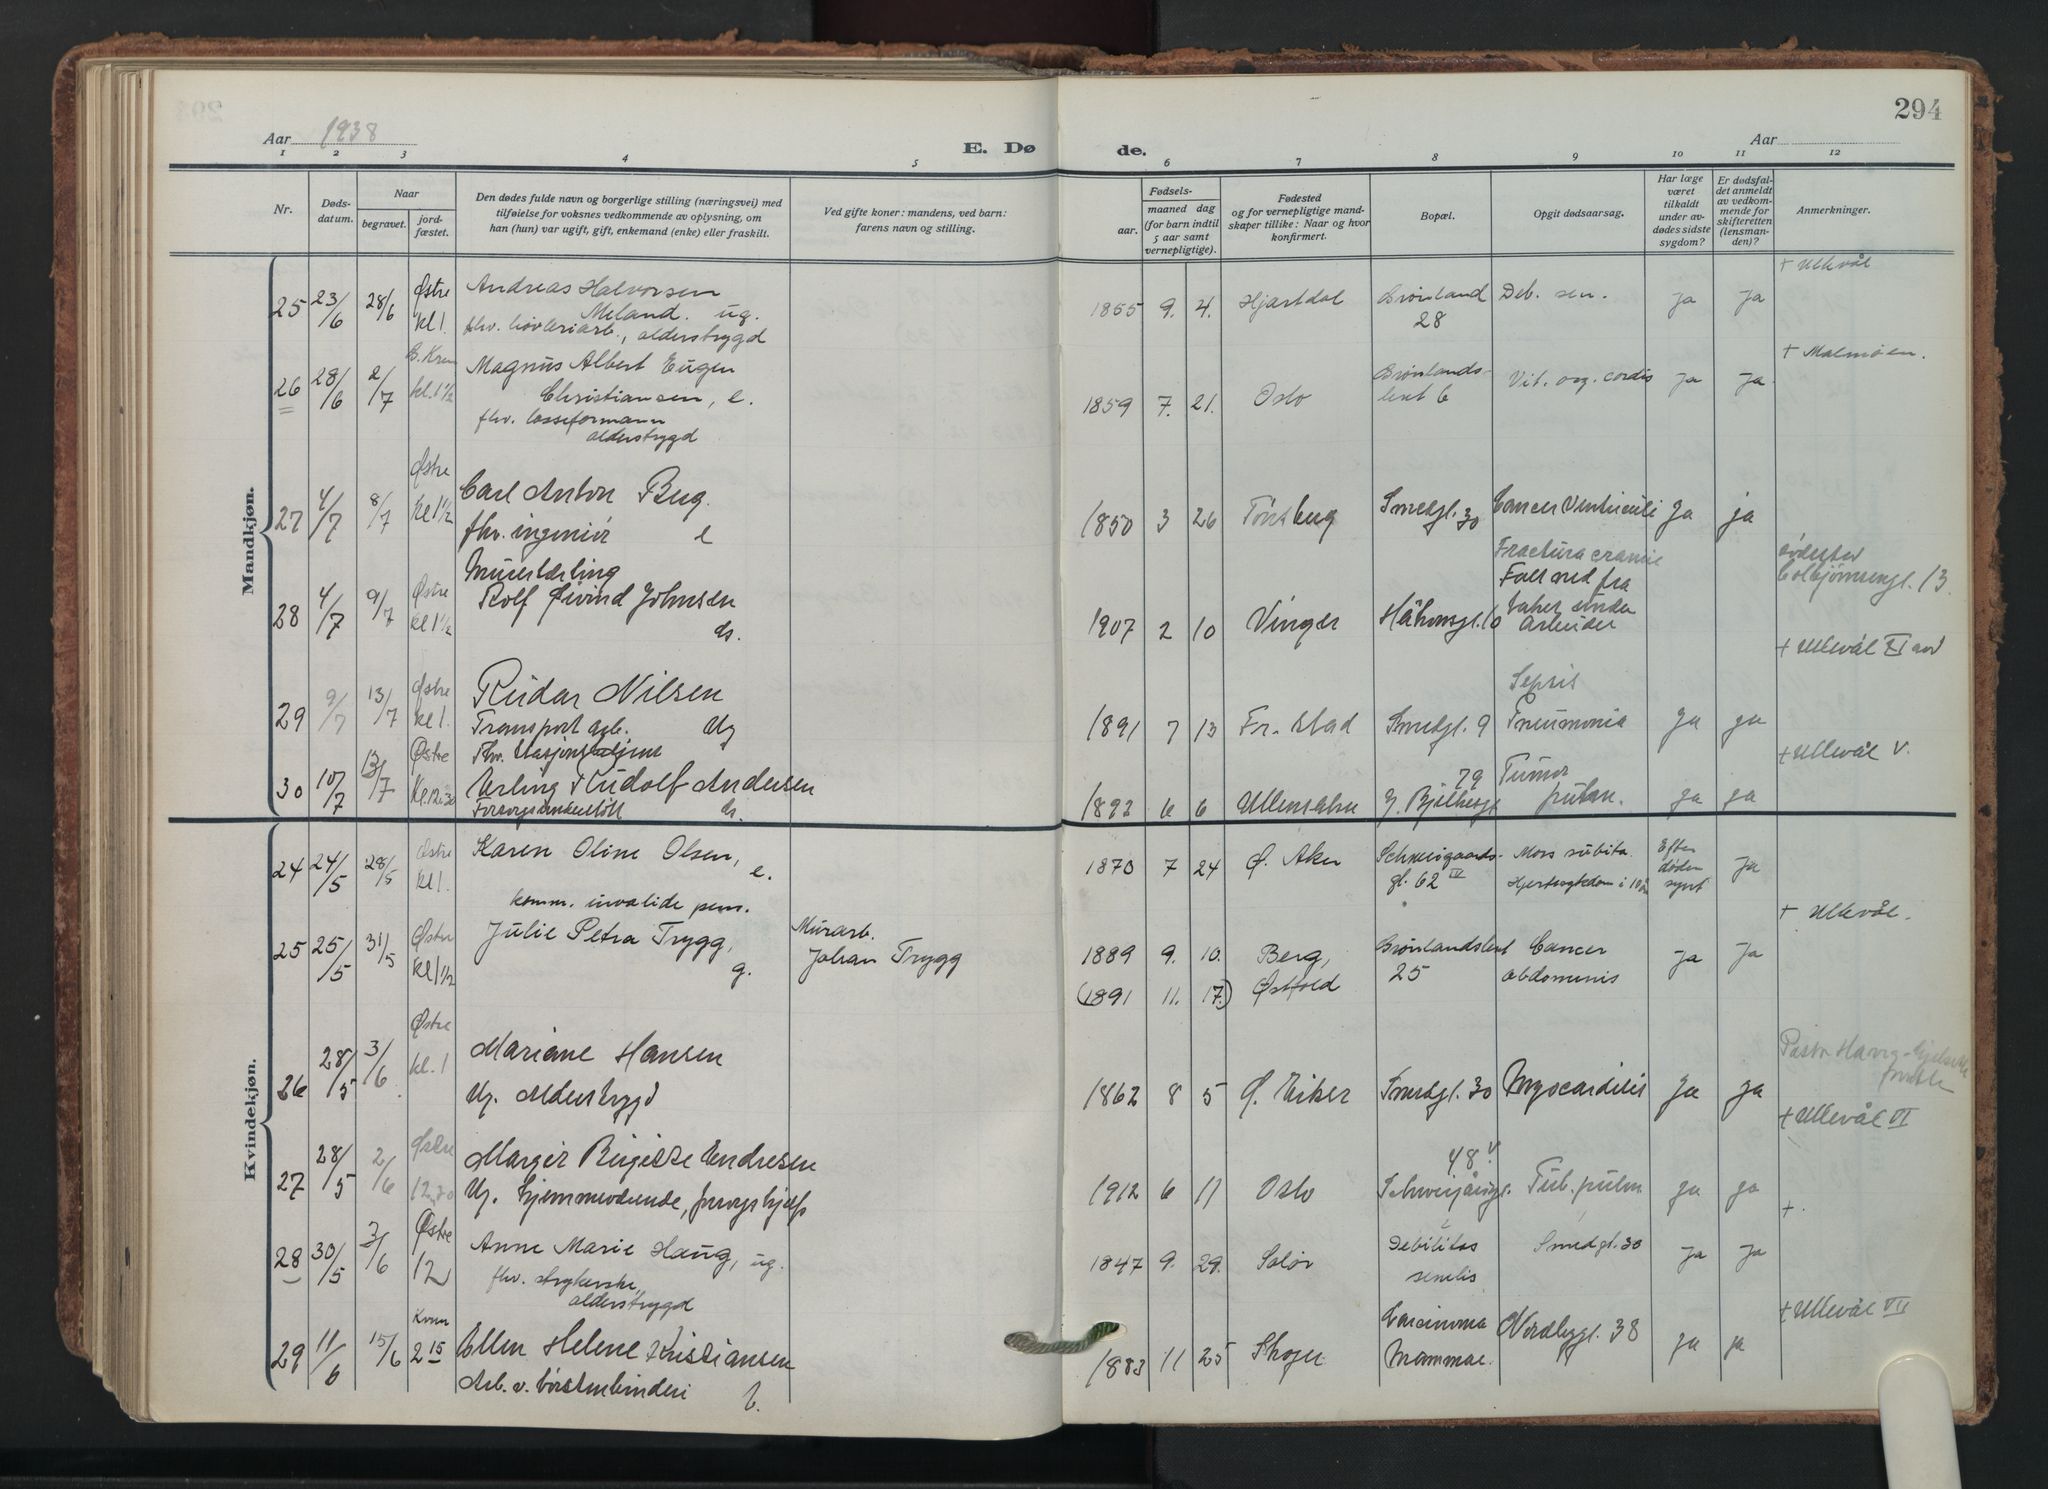 294
Aar 1938
E. Dø de.
Aar
1 2 3 4 5 6 7 8 9 10 11 12
Nr.
Døds-
datum.
Naar
begravet.
jord-
fæstet.
Den dødes fulde navn og borgerlige stilling (næringsvei) med
tilføielse for voksnes vedkommende av oplysning, om
han (hun) var ugift, gift, enkemand (enke) eller fraskilt.
Ved gifte koner: mandens, ved barn:
farens navn og stilling.
Fødsels-
aar.
maaned dag
(for barn indtil
5 aar samt
vernepligtige).
Fødested
og for vernepligtige mand-
skaper tillike: Naar og hvor
konfirmert.
Bopæl.
Opgit dødsaarsag.
Har læge
været
tilkaldt
under av-
dødes sidste
sygdom?
Er dødsfal-
det anmeldt
av vedkom-
mende for
skifteretten
(lensman-
den)?
Anmerkninger.
Mandkjøn.
25 23/6 28/6 Østre kl 1.
Andreas Halvorsen
Meland. ug.
fhv. høvleriarb., alderstrygd
1855 9. 4. Hjartdal
Grønland
28
Deb. sen.
Ja Ja
+ Ullevål
26 28/6 2/7
kl. 1 1/2
Magnus Albert Eugen
Christiansen, e.
fhv. losseformann
alderstrygd
1859 7. 21. Oslo
Grønlands-
leret 6
Vit. org. cordis
Ja Ja.
+ Malmøen.
27 4/7 8/7 Østre kl 1 1/2
Carl Anton Bug.
fhv. ingeniør e
1850 3 26 Tønsberg
Smedgt. 30
Cancer Ventriculi
Ja ja
28 4/7 9/7 Østre kl 1 1/2
Murerlærling
Rolf Øivind Johnsen
ds.
1907 2 10 Vinger
Håkonsgt. 10
Fractura cranie
Falt ned fra
taket under
arbeider
Colbjørnsengt. 13.
29 9/7 13/7 Østre kl 1.
Reidar Nilsen
Transport arb. Ug
1891 7 13 Fr. stad
Smedgt. 9
Sepsis
Pneumonia
Ja ja
+ Ullevål XI avd
30 10/7 13/7 Østre Kl. 12.30
Erling Rudolf Andersen
ds.
1892 6 6 Ullensaker
79
Tumor
pulm.
ja ja
+ Ullevål V.
Kvindekjøn.
24 24/5 28/5 Østre kl 1.
Karen Oline Olsen,
e.
komm. invalide pens.
1870 7 24 Ø. Aker
Schweigaards-
gt. 62 IV
Mors subita.
Hjertesykdom i 10 år
Efter
døden
synt
Ja
25 25/5 31/5 Østre kl 1 1/2
Julie Petra Trygg,
g.
Murarb.
Johan Trygg
1889 9. 10.
(1891 11. 17.)
Berg,
Østfold
Grønlandsleret
25
Cancer
abdominis
Ja Ja
+ Ullevål.
26 28/5 3/6 Østre kl. 1
Mariane Hansen
Ug. Alderstrygd
1862 8 5 Ø. Eiker
Smedgt. 30
Myocarditis
Ja ja
27 28/5 2/6 Østre 12.30
Margit Birgitte Endresen
Ug. hjemmeværende, forsorgshjelp
1912 6 11 Oslo
48 V
Tub. pulm
ja ja
+ Ullevål VI
28 30/5 3/6 Østre 12
Anne Marie Haug, ug.
fhv. strykerske,
alderstrygd
1847 9. 29. Solør
Debilitas
senilis
Smedgt. 30
Ja Ja
+.
29 11/6 15/6 Krem 2 15
Ellen Helene Kristiansen
Arb. v. børstenbinderi
1883 11 25 Skoger
Carcinoma
Mammae.
Nordbygt. 38
ja ja
+ Ullevål VII